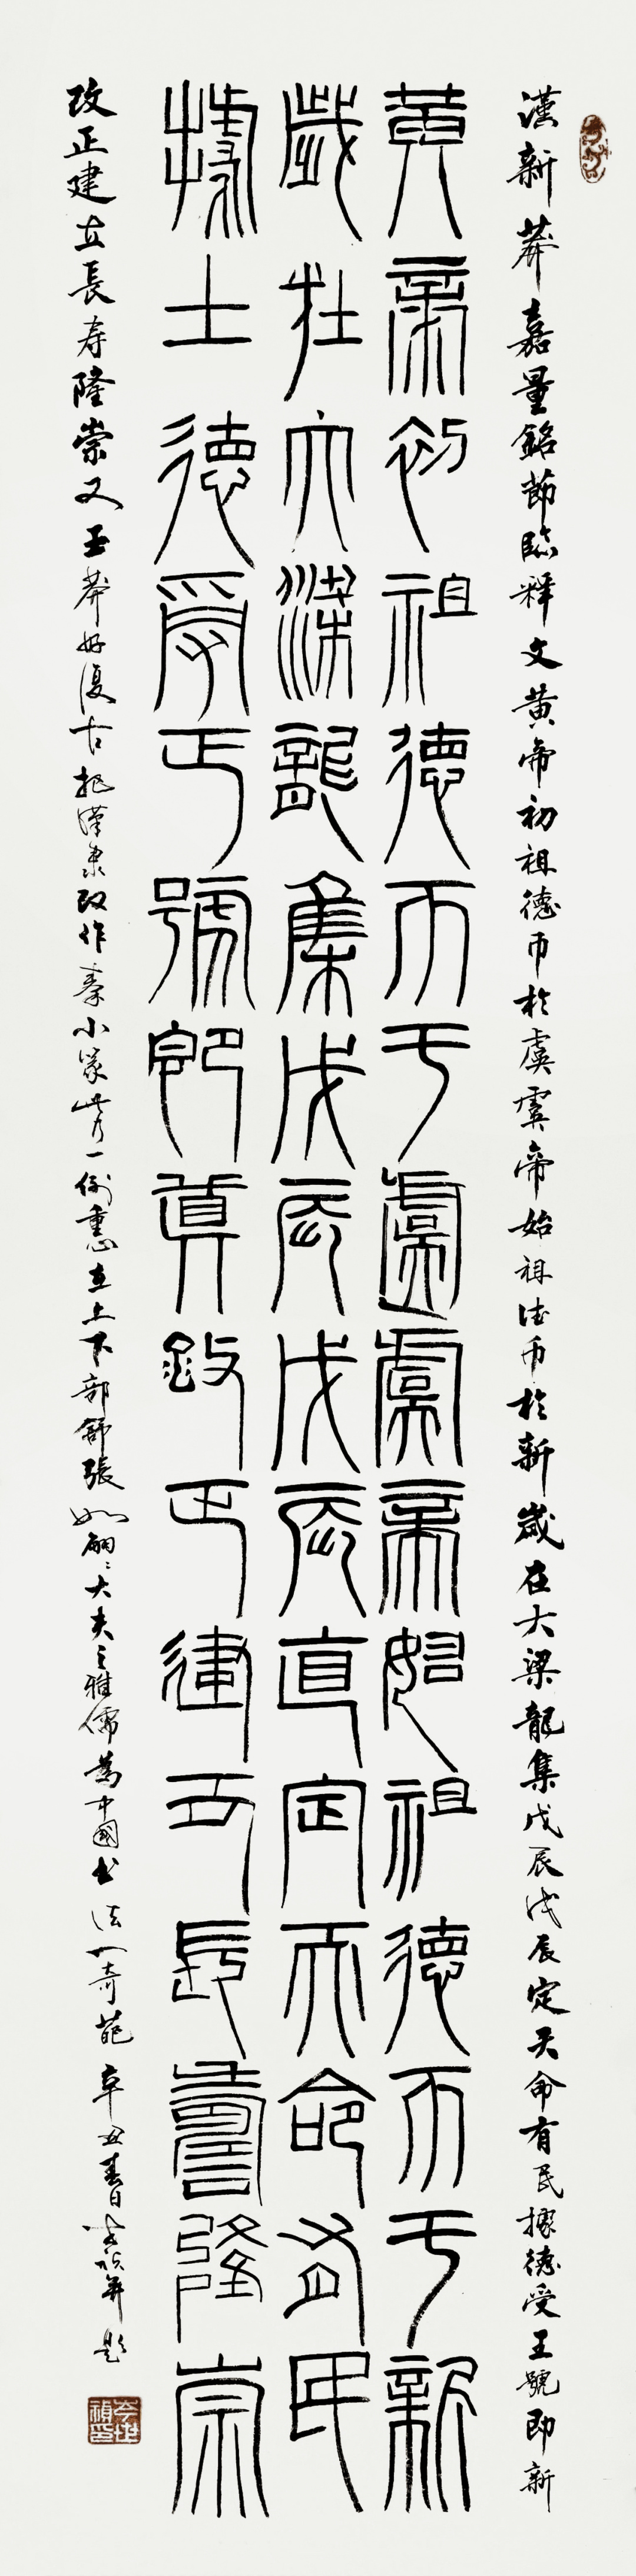 漢新莽嘉量銘節臨釋文黃帝初祖德帀於虞虞帝始祖德帀於新歲在大梁龍集戊辰戊辰定天命有民據德受正號即新
黃帝初祖德帀于虞虞帝始祖德帀于新
歲在大梁龍集戊辰戊辰直定天命有民
據土德受正號即真改正建丑長壽隆崇
改正建丑長壽隆崇又王莽好復古把漢隸改作秦小篆 一例重心在上下部舒張如翩翩大夫之雅儒為中國書法一奇葩辛丑春日 并題